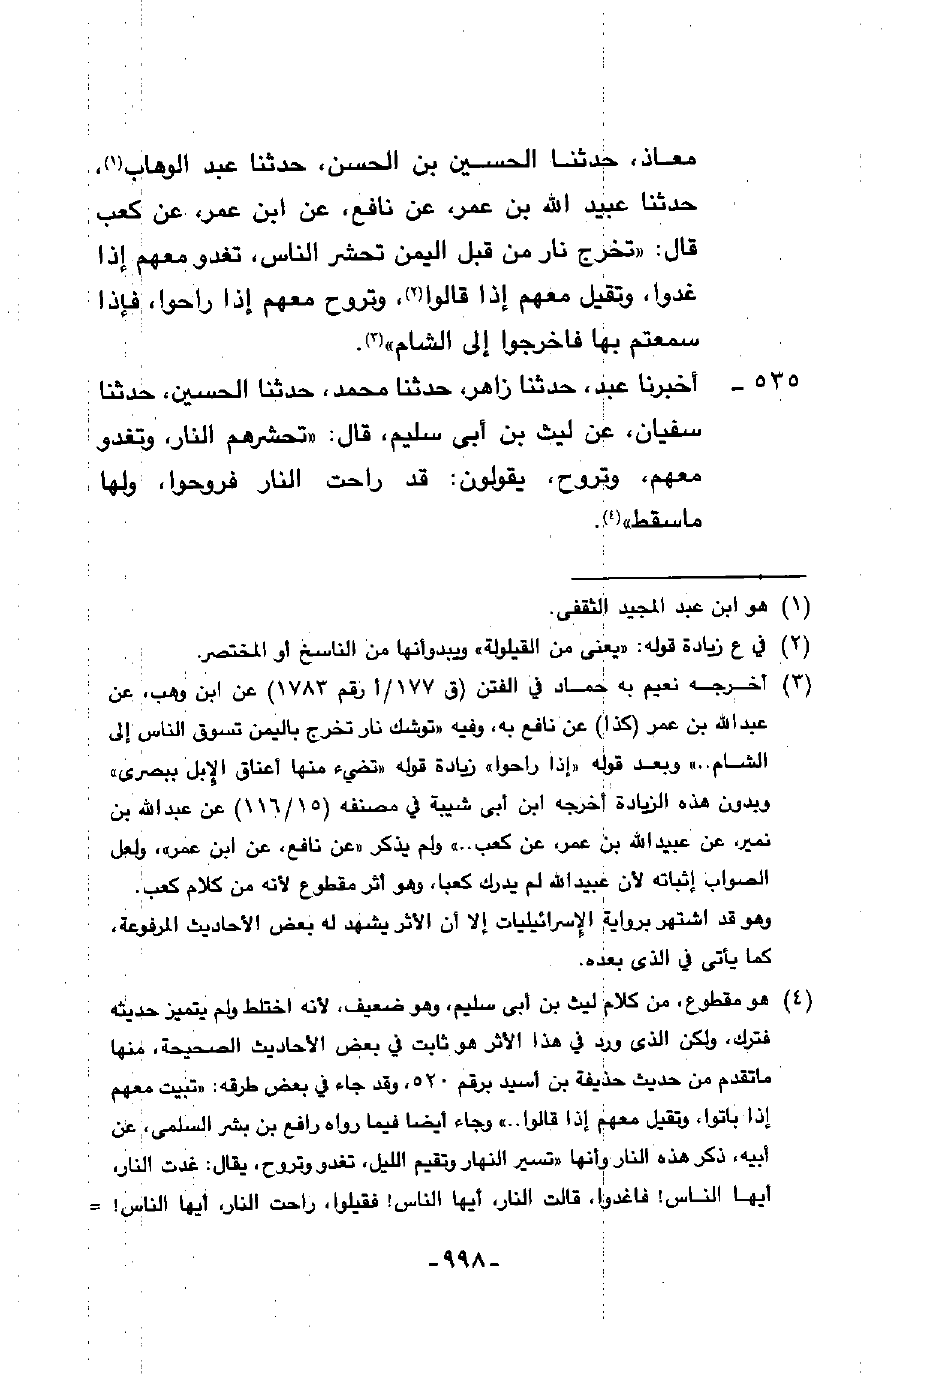 معاذ، حدثنا الحسين بن الحسن، حدثنا عبد الوهاب(١)،
حدثنا عبيد الله بن عمر، عن نافع، عن ابن عمر، عن كعب
قال: «تخرج نار من قبل اليمن تحشر الناس، تغدو معهم إذا
غدوا، وتقيل معهم إذا قالوا(٢)، وتروح معهم إذا راحوا، فإذا
سمعتم بها فاخرجوا إلى الشام»(٣).
٥٣٥ ـ أخبرنا عبد، حدثنا زاهر، حدثنا محمد، حدثنا الحسين، حدثنا
سفيان، عن ليث بن أبي سليم، قال: «تحشرهم النار، وتغدو
معهم، وتروح، يقولون: قد راحت النار فروحوا، ولها
ماسقط»(٤).
(١) هو ابن عبد المجيد الثقفى.
(٢) في ع زيادة قوله: «يعنى من القيلولة» ويبدوأنها من الناسخ أو المختصر.
(٣) أخرجه نعيم به حماد في الفتن (ق ١٧٧/أ رقم ١٧٨٣) عن ابن وهب، عن
عبدالله بن عمر (كذا) عن نافع به، وفيه «توشك نار تخرج باليمن تسوق الناس إلى
الشام..» وبعد قوله «إذا راحوا» زيادة قوله «تضيء منها أعناق الإبل ببصرى»
وبدون هذه الزيادة أخرجه ابن أبى شيبة في مصنفه (١١٦/١٥) عن عبدالله بن
نمير، عن عبيدالله بن عمر، عن كعب..» ولم يذكر «عن نافع، عن ابن عمر»، ولعل
الصواب إثباته لأن عبيدالله لم يدرك كعبا، وهو أثر مقطوع لأنه من كلام كعب.
وهو قد اشتهر برواية الإسرائيليات إلا أن الأثر يشهد له بعض الأحاديث المرفوعة،
كما يأتى في الذى بعده.
(٤) هو مقطوع، من كلام ليث بن أبى سليم، وهو ضعيف، لأنه اختلط ولم يتميز حديثه
فترك، ولكن الذى ورد في هذا الأثر هو ثابت في بعض الأحاديث الصحيحة، منها
ماتقدم من حديث حذيفة بن أسيد برقم ٥٢٠، وقد جاء في بعض طرقه: «تبيت معهم
إذا باتوا، وتقيل معهم إذا قالوا..» وجاء أيضا فيما رواه رافع بن بشر السلمى، عن
أبيه، ذكر هذه النار وأنها «تسير النهار وتقيم الليل، تغدو وتروح، يقال: غدت النار،
أيها الناس! فاغدوا، قالت النار، أيها الناس! فقيلوا، راحت النار، أيها الناس! =
-٩٩٨-